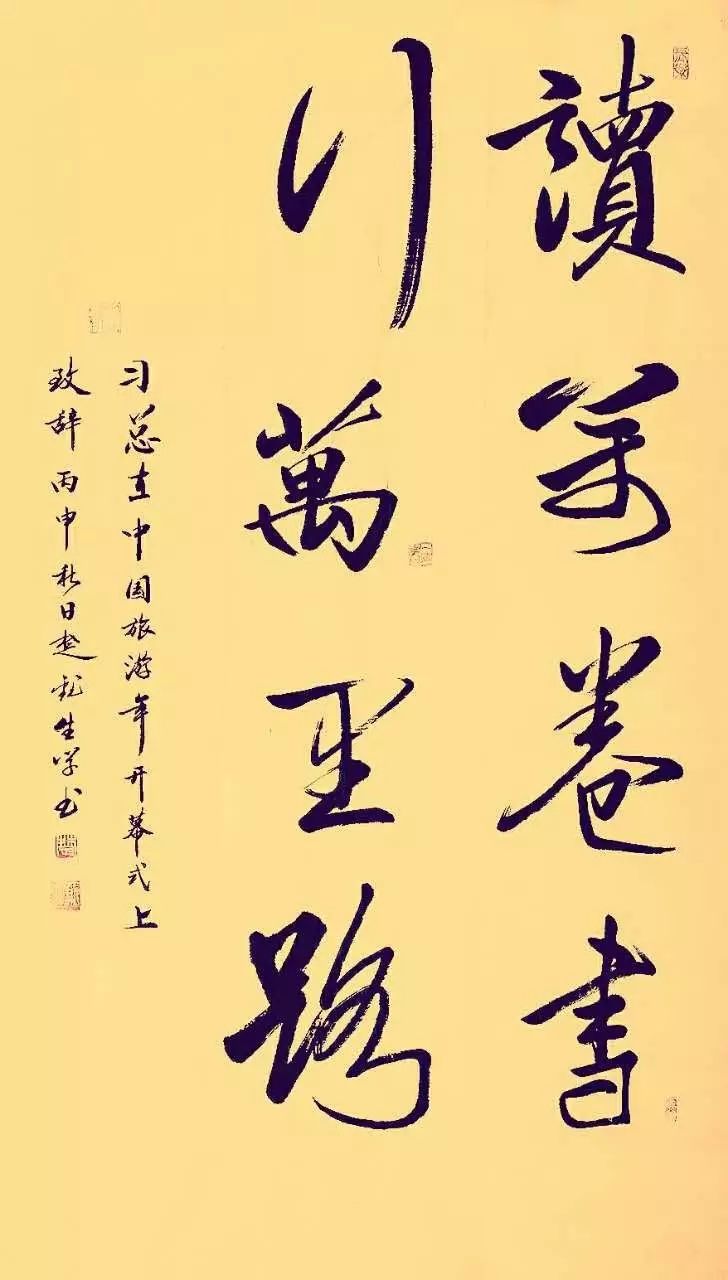 讀萬卷書
行萬里路
习总在中国旅游年开幕式上
致辞丙申秋日生学书